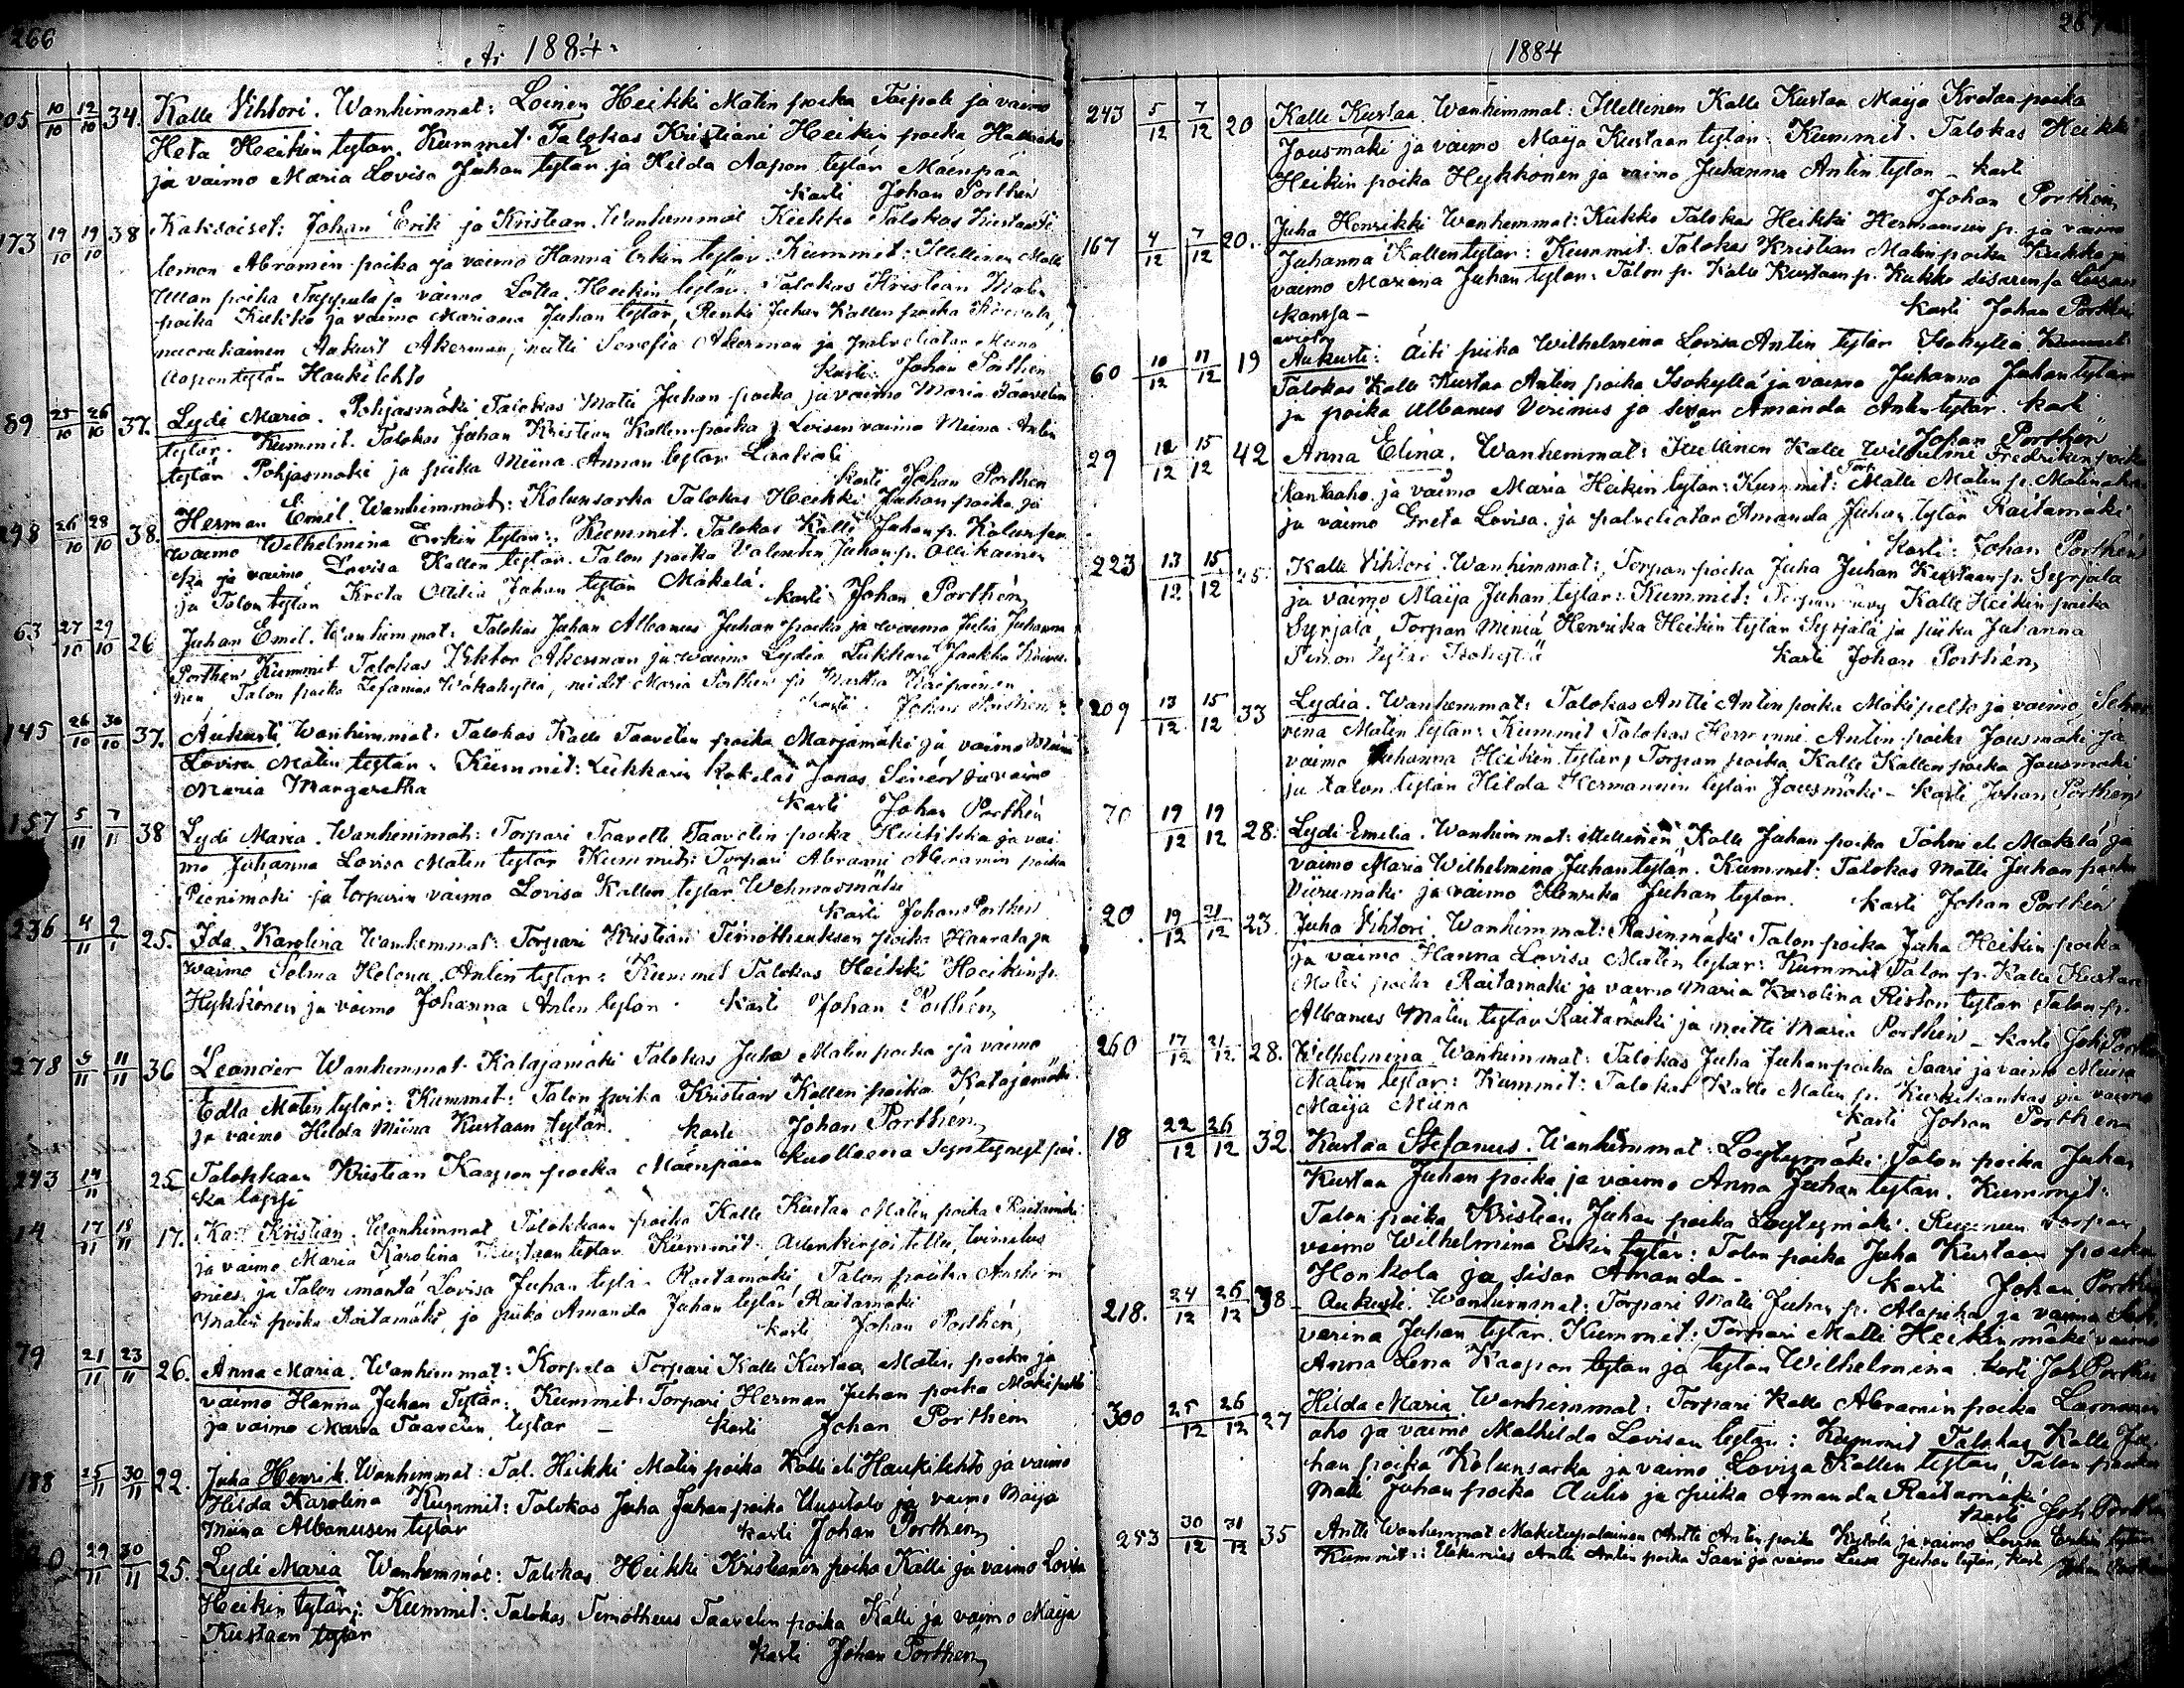 266
A: 1884
205 10/10 12/10 34. Kalle Vihtori. Wanhimmat: Loinen Heikki Matin poika Taipale ja vaimo
Heta Heikin tytär. Kummit: Talokas Kristiani Heikin poika
ja vaimo Maria Lovisa Juhan tytär ja Hilda Aapon tytär Mäenpää
kasti Johan Porthén
173 19/10 19/10 38 Kaksoiset: Johan Erik ja Kristian. Wanhimmat Kukko Talokas Kustaa
Abramin poika ja vaimo Hanna Erkin tytär. Kummit: Itellinen
poika ja vaimo Lotta Heikin tytär. Talokas Kristian Matin
poika Kukko ja vaimo Mariana Juhan tytär, Renki Juhan Kallen poika
nuorukainen Aukust Åkerman, neitti Serafia Åkerman ja palveliatar
Aapon tytär Haukilehto kasti: Johan Porthén
89 25/10 26/10 37. Lydi Maria. Pohjasmäki Talokas Matti Juhan poika ja vaimo Maria Taavetin
tytär. Kummit. Talokas Juhan Kristian Kallen poika j. Lovisen vaimo Miina Antin
tytär Pohjasmäki ja piika Miina Annan tytär
kasti Johan Porthén
298 26/10 28/10 38. Herman Emil Wanhimmat: Kolunsarka Talokas Heikki Juhan poika ja
waimo Wilhelmina Erkin tytär: Kummit. Talokas Kalle Juhan p. Kolunsar
ka ja vaimo Lovisa Kallen tytär. Talon poika Valentin Juhan p. Ollikainen
ja Talon tytär Kreta Ottilia Juhan tytär Mäkelä. kasti Johan Porthén
63 27/10 29/10 26 Juhan Emil. Wanhimmat: Talokas Juhan Albanus Juhan poika ja waimo Julia Juhanna
Porthén Kummit Talokas Viktor Åkerman ja waimo Lydia Lukkari Jaakko
nen, Talon poika Sefanias Wäkäkyttä, neidet Maria Porthén ja Martha
kasti Johan Porthén
145 26/10 30/10 37. Aukusti Wanhimmat: Talokas Kalle Taavetin poika Marjamäki ja vaimo Miina
Lovisa Matin tytär. Kummit: Lukkarin kokelas Jonas Sirén ja vaimo
Maria Margaretha
kasti Johan Porthén
157 5/11 7/11 38 Lydi Maria. Wanhimmat: Torpari Taavetti Taavetin poika ja vai
mo Juhanna Lovisa Matin tytär Kummit: Torpari Abrami Abramin poika
Pienimäki ja torparin vaimo Lovisa Kallen tytär Wehmasmäki
kasti Johan Porthén
236 4/11 9/11 25. Ida Karolina Wanhemmat: Torpari Kristian Timotheuksen poika Haarala ja
waimo Selma Helena Antin tytär: Kummit Talokas Heikki Heikin p.
Hykkönen ja vaimo Johanna Antin tytär. kasti Johan Porthén
278 9/11 11/11 36 Leander Wanhemmat. Katajamäki Talokas Juha Matin poika ja vaimo
Edla Matin tytär: Kummit: Talon poika Kristian Kallen poika Katajamäki
ja vaimo Hilda Miina Kustaan tytär. kasti Johan Porthén
243 14/11 25 Talokkaan Kristian Kaapon poika Mäenpään kuolleena syntynyt poi
ka lapsi
14 17/11 18/11 17. Karl Kristian. Wanhimmat Talokkaan poika Kalle Kustaa Matin poika Raitamäki
ja vaimo Maria Karolina Kustaan tytär Kummit: Allenkirjoitettu, toimitus
mies, ja Talon emäntä Lovisa Juhan tytär Raitamäki, Talon poika
Matin poika Raitamäki, ja piika Amanda Juhan tytär Raitamäki
kasti Johan Porthén,
79 21/11 23/11 26. Anna Maria. Wanhimmat: Korpela Torpari Kalle Kustaa Matin poika ja
vaimo Hanna Juhan Tytär. Kummit: Torpari Herman Juhan poika Mäkipelto
ja vaimo Maria Taavetin tytär – kasti Johan Porthén
188 25/11 30/11 22. Juha Henrik. Wanhemmat: Tal. Heikki Matin poika Kalli eli Haukilehto ja vaimo
Hilda Karolina Kummit: Talokas Juha Juhan poika Uusitalo ja vaimo Maija
Miina Albanusen tytär kasti Johan Porthén
29/11 30/11 25. Lydi Maria Wanhemmat: Talokas Heikki Kristianin poika Källi ja vaimo Lovisa
Heikin tytär: Kummit: Talokas Timotheus Taavetin poika Källi ja vaimo Maija
Kustaan tytär
kasti Johan Porthén,
267
1884
243 5/12 7/12 20 Kalle Kustaa. Wanhimmat: Itellinen Kalle Kustaa Maija Kretan poika
Jousmäki ja vaimo Maija Kustaan tytär. Kummit. Talokas Heikki
Heikin poika Hykkönen ja vaimo Juhanna Antin tytär – kasti
Johan Porthén
167 4/12 7/12 20. Juha Henrikki Wanhemmat: Kukko Talokas Heikki Hermannin p. ja vaimo
Juhanna Kallen tytär: Kummit: Talokas Kristian Matin poika Kukko ja
vaimo Mariana Juhan tytär: Talon p. Kalle Kustaan p. Kukko sisarensa Lovisan
kanssa – kasti Johan Porthén
60 10/12 17/12 19 Aukusti: äiti piika Wilhelmina Lovisa Antin tytär Isokyttä Kummit:
Talokas Kalle Kustaa Antin poika Isokyttä ja vaimo Juhanna Juhan tytär
ja poika Albanus Verinus ja sisar Amanda Antin tytär. kasti
Johan Porthén
29 12/12 15/12 42 Anna Elina. Wanhemmat: Itellinen Kalle Wilhelmi Fredrikin poika
Kankaho ja vaimo Maria Heikin tytär: Kummit: Torp. Malle Matin p. Matinaho
ja vaimo Greta Lovisa. ja palveliatar Amanda Juhan tytär Raitamäki
kasti: Johan Porthén
223 13/12 15/12 25. Kalle Vihtori. Wanhimmat: Torpan poika Juha Juhan Kustaan p. Syrjälä
ja vaimo Maija Juhan tytär: Kummit: Torpan Kalle Heikin poika
Syrjälä, Torpan Miniä Henrika Heikin tytär Syrjälä ja piika Juhanna
Simon tytär Isokyttä kasti Johan Porthén,
209 13/12 15/12 33 Lydia. Wanhemmat: Talokas Antti Antin poika Mäkipelto ja vaimo
rina Matin tytär: Kummit Talokas Hermanni Antin poika Jousmäki ja
vaimo Juhanna Heikin tytär, Torpan poika Kalle Kallen poika Jousmäki
ja talon tytär Hilda Hermannin tytär Jousmäki – kasti Johan Porthén
70 19/12 19/12 28. Lydi Emelia. Wanhimmat: itellinen Kalle Juhan poika eli Mäkelä ja
vaimo Maria Wilhelmina Juhan tytär. Kummit: Talokas Matti Juhan poika
Viirumäki ja vaimo Henrika Juhan tytär. kasti Johan Porthén
20 19/12 21/12 23. Juha Vihtori. Wanhimmat: Rasinmäki Talon poika Juha Heikin poika
ja vaimo Hanna Lovisa Matin tytär: Kummit Talon p. Kalle Kustaa
Matin poika Raitamäki ja vaimo Maria Karolina Riston tytär Talon p.
Albanus Matin tytär Raitamäki ja neitti Maria Porthén – kasti Joh Porthén
260 17/12 21/12 28. Wilhelmina Wanhimmat: Talokas Juha Juhan poika Saari ja vaimo Miina
Matin tytär: Kummit: Talokas Kalle Matin p. Kurkikankas ja vaimo
Maija Miina kasti Johan Porthén
18 22/12 26/12 32. Kustaa Stefanus. Wanhimmat: Löytymäki Talon poika Juha
Kustaa Juhan poika ja vaimo Anna Juhan tytär. Kummit:
Talon poika Kristian Juhan poika Löytymäki. torpar
vaimo Wilhelmina Erkin tytär: Talon poika Juha Kustaan poika
Honkola ja sisar Amanda – kasti Johan Porthén
218. 24/12 26/12 38 Aukusti. Wanhimmat: Torpari Matti Juhan p. Alapiha ja vaimo
verina Juhan tytär. Kummit: Torpari Matti Heikinmäki vaimo
Anna Lena Kaapon tytär ja tytär Wilhelmina kasti Joh Porthén
300 25/12 26/12 27 Hilda Maria. Wanhimmat: Torpari Kalle Abramin poika
aho ja vaimo Mathilda Lovisan tytär: Kummit Talokas Kalle Ju
han poika Kolunsarka ja vaimo Lovisa Kallen tytär, Talon poika
Matti Juhan poika Auho ja piika Amanda Raitamäki
kasti Joh Porthén
253 30/12 31/12 35 Antti Wanhimmat Mäkitupalainen Antti Antin poika ja vaimo Lovisa Erkin tytär
Kummit: Antti Antin poika Saari ja vaimo Liisa Juhan tytär, kasti Johan Porthén